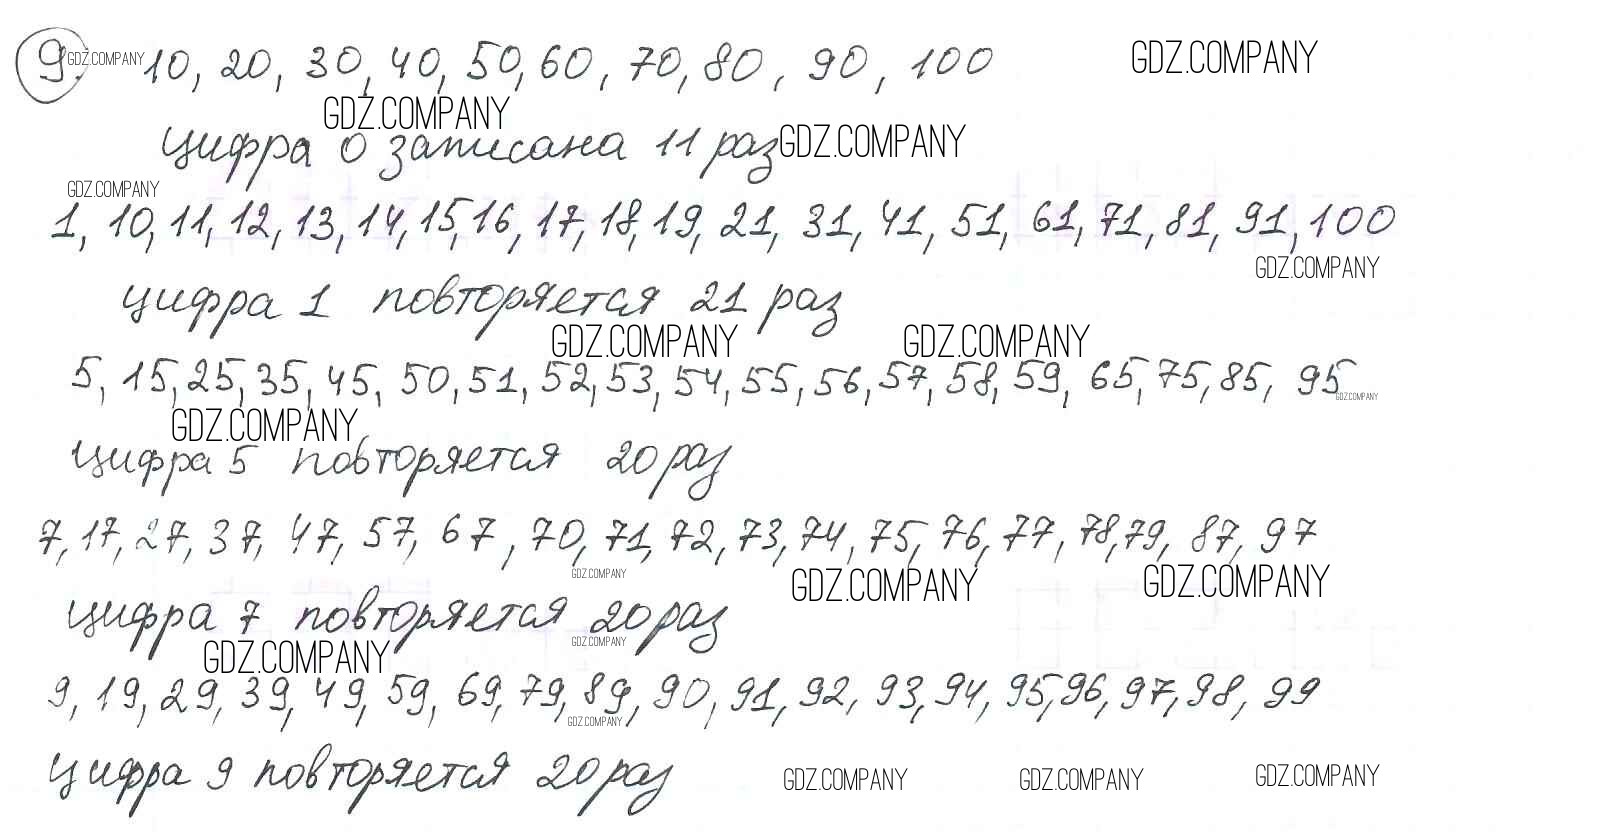 9. GDZ.COMPANY 10, 20, 30, 40, 50, 60, 70, 80, 90, 100 GDZ.COMPANY
GDZ.COMPANY
цифра 0 записана 11 раз GDZ.COMPANY
GDZ.COMPANY
1, 10, 11, 12, 13, 14, 15, 16, 17, 18, 19, 21, 31, 41, 51, 61, 71, 81, 91, 100
GDZ.COMPANY
цифра 1 повторяется 21 раз
GDZ.COMPANY GDZ.COMPANY
5, 15, 25, 35, 45, 50, 51, 52, 53, 54, 55, 56, 57, 58, 59, 65, 75, 85, 95
GDZ.COMPANY
GDZ.COMPANY
цифра 5 повторяется 20 раз
7, 17, 27, 37, 47, 57, 67, 70, 71, 72, 73, 74, 75, 76, 77, 78, 79, 87, 97
GDZ.COMPANY GDZ.COMPANY GDZ.COMPANY
цифра 7 повторяется 20 раз
GDZ.COMPANY GDZ.COMPANY
9, 19, 29, 39, 49, 59, 69, 79, 89, 90, 91, 92, 93, 94, 95, 96, 97, 98, 99
GDZ.COMPANY
цифра 9 повторяется 20 раз GDZ.COMPANY GDZ.COMPANY GDZ.COMPANY